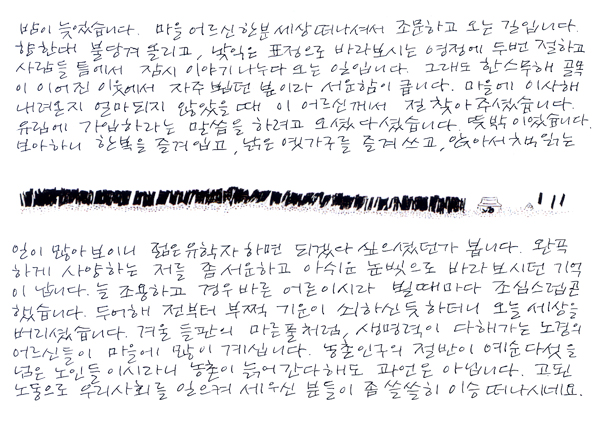 밤이 늦었습니다. 마을 어르신 한분 세상 떠나셔서 조문하고 오는 길입니다.
향 한대 불당겨 올리고, 낯익은 표정으로 바라보시는 영정에 두번 절하고
사람들 틈에서 잠시 이야기 나누다 오는 일입니다. 그래도 한 스무해 골목
이 이어진 이웃에서 자주 뵙던 분이라 서운함이 큽니다. 마을에 이사해
내려온지 얼마되지 않았을 때 이 어르신께서 절 찾아주셨습니다.
유림에 가입하라는 말씀을 하려고 오셨다셨습니다. 뜻밖이었습니다.
보아하니 한복을 즐겨입고, 낡은 옛가구를 즐겨 쓰고, 앉아서 책 읽는
일이 많아보이니 젊은 유학자 하면 되겠다 싶으셨던가 봅니다. 완곡
하게 사양하는 저를 좀 서운하고 아쉬운 눈빛으로 바라보시던 기억
이 납니다. 늘 조용하고 경우 바른 어른이시라 뵐때마다 조심스럽곤
했습니다. 두어해 전부터 부쩍 기운이 쇠하신듯 하더니 오늘 세상을
버리셨습니다. 겨울 들판의 마른풀처럼, 생명력이 다해가는 노경의
어르신들이 마을에 많이 계십니다. 농촌인구의 절반이 예순 다섯을
넘은 노인들이시라니 농촌이 늙어간다해도 과언은 아닙니다. 고된
노동으로 우리사회를 일으켜 세우신 분들이 좀 쓸쓸히 이승 떠나시네요.